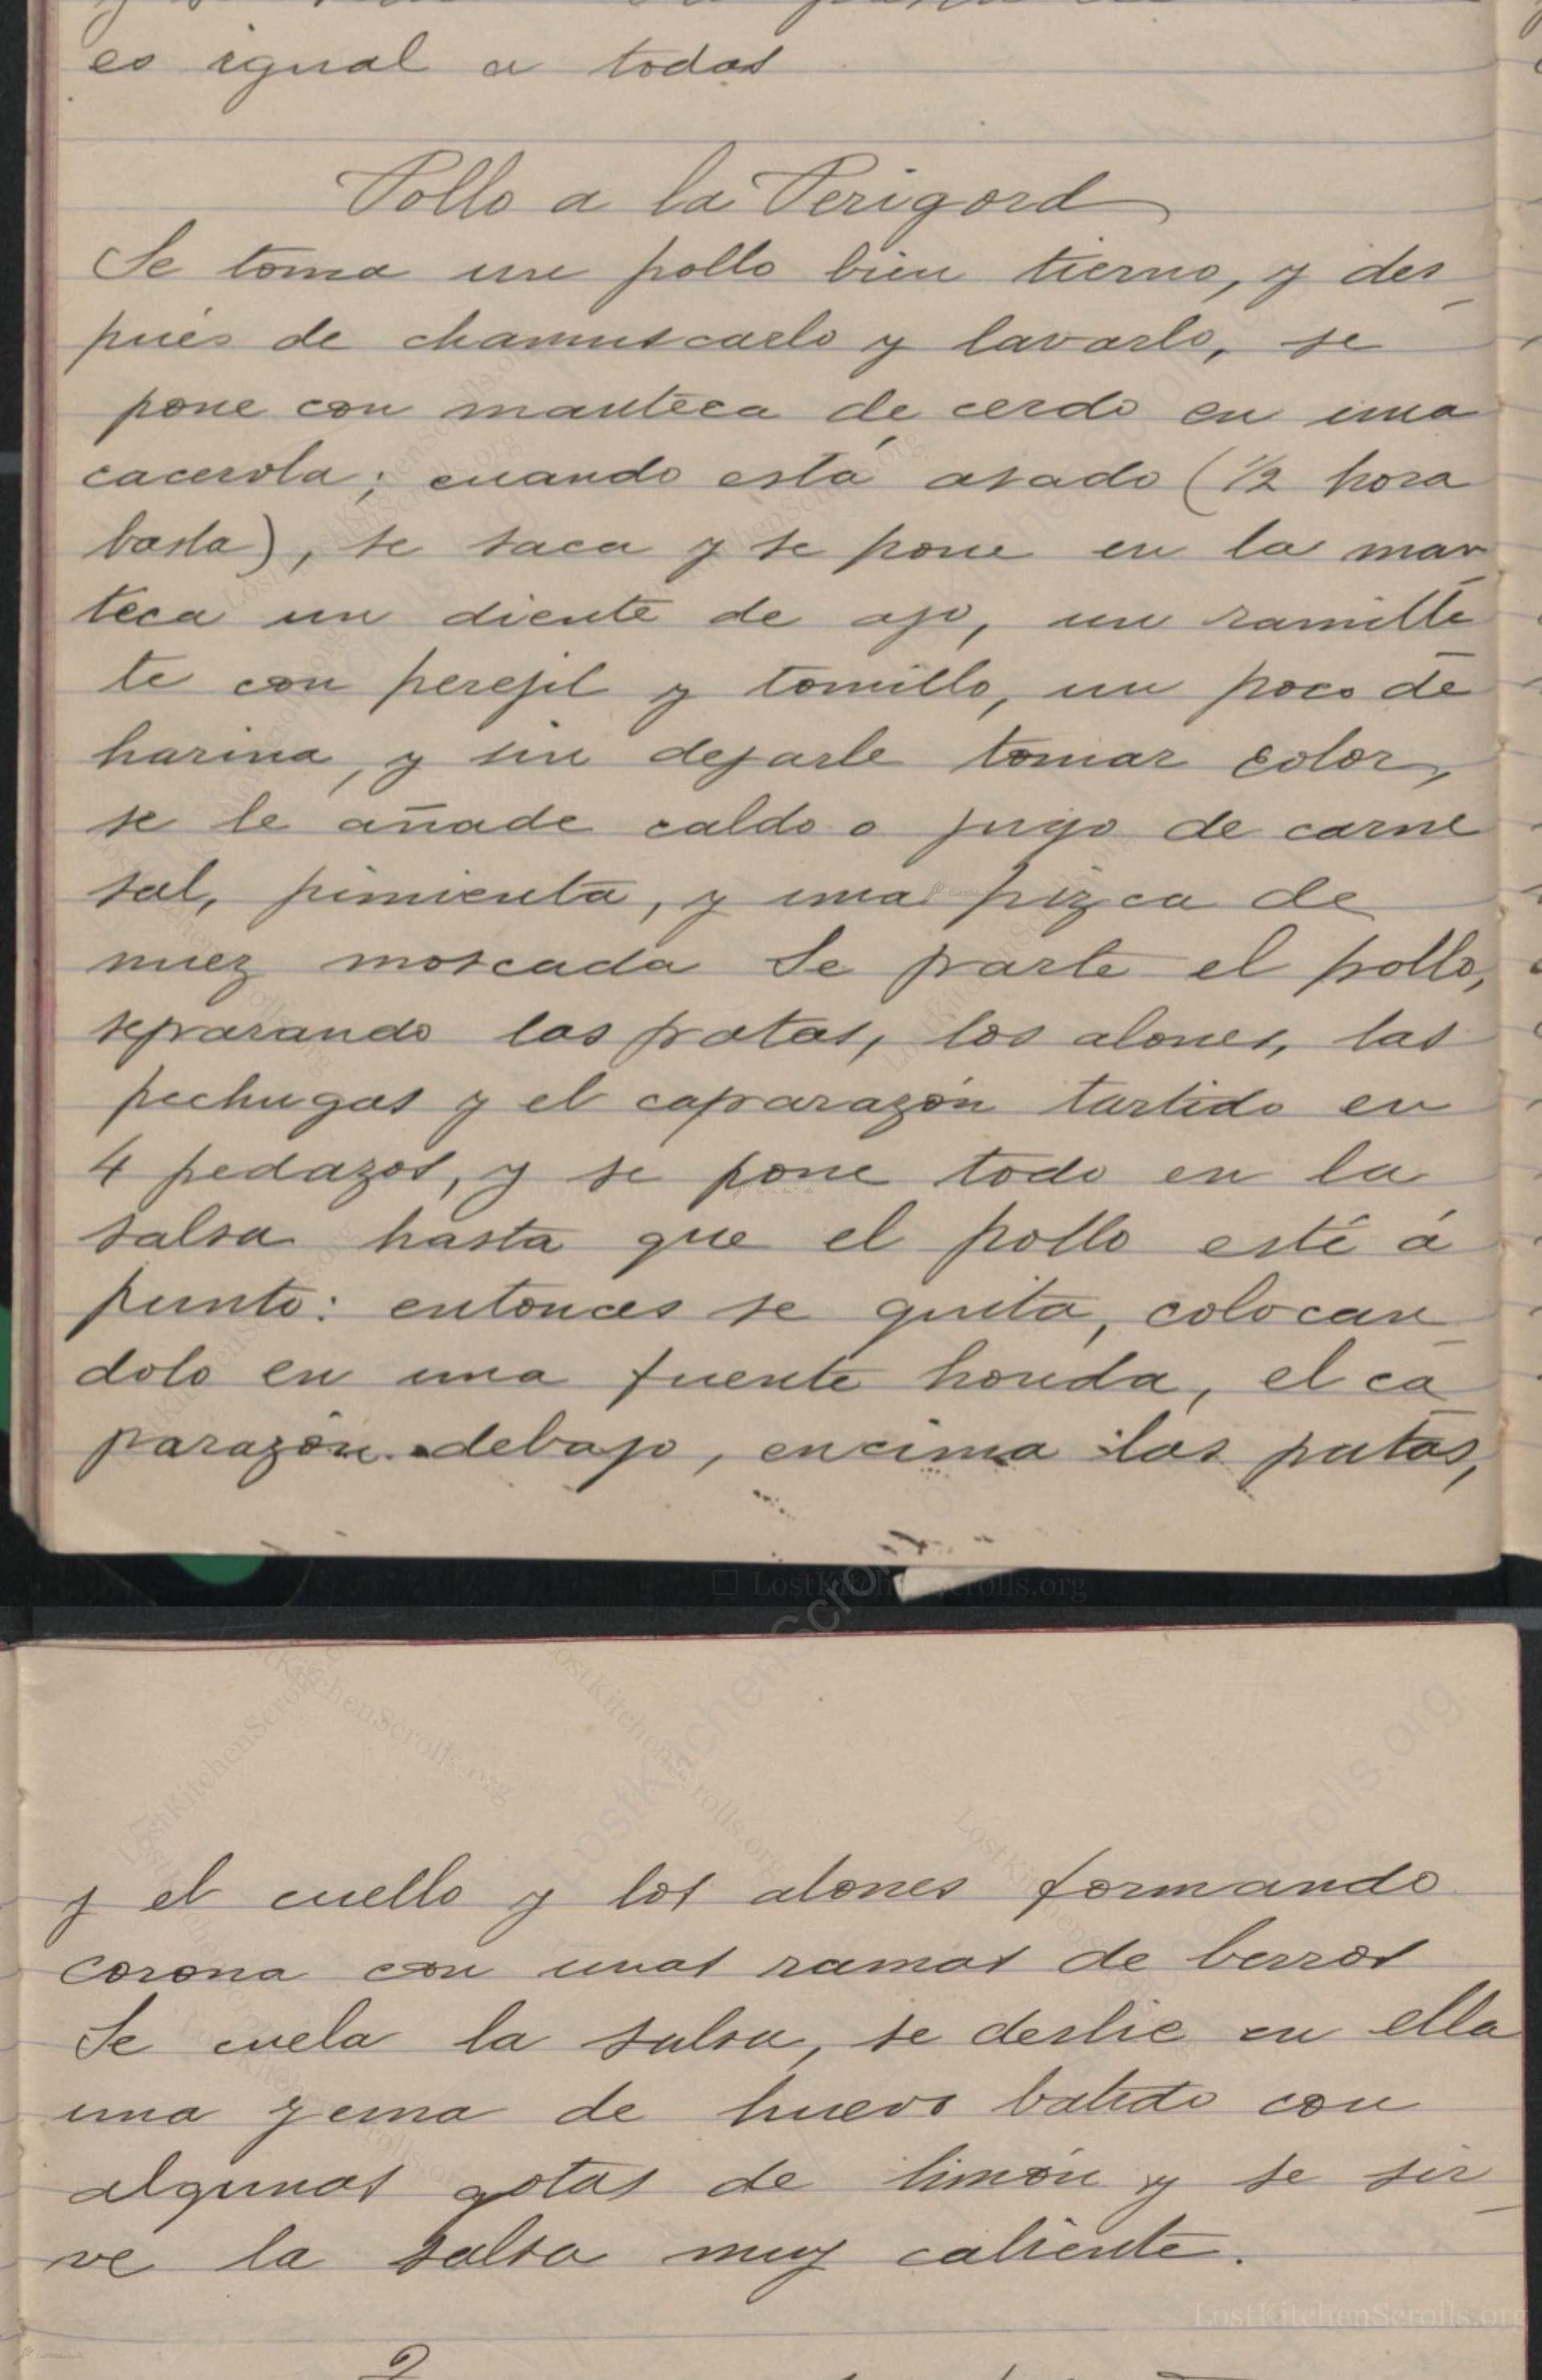 es igual a todas
Pollo a la Perigord
Se toma un pollo bien tierno, y des
pués de chamuscarlo y lavarlo, se
pone con manteca de cerdo en una
cacerola; cuando está asado (1/2 hora
basta), se saca y se pone en la man
teca un diente de ajo, un ramille
te con perejil y tomillo, un poco de
harina, y sin dejarle tomar color,
se le añade caldo o jugo de carne
sal, pimienta, y una pizca de
nuez moscada Se parte el pollo,
separando las patas, los alones, las
pechugas y el caparazón tartido en
4 pedazos, y se pone todo en la
salsa hasta que el pollo esté á
punto: entonces se quita, colocan
dolo en una fuente honda, el ca
parazón debajo, encima las patas,
LostKitchenScrolls.org
y el cuello y los alones formando
corona con unas ramas de berros
Se cuela la salsa, se deslie en ella
una yema de huevo batido con
algunas gotas de limón y se sir
ve la salsa muy caliente.
LostKitchenScrolls.org